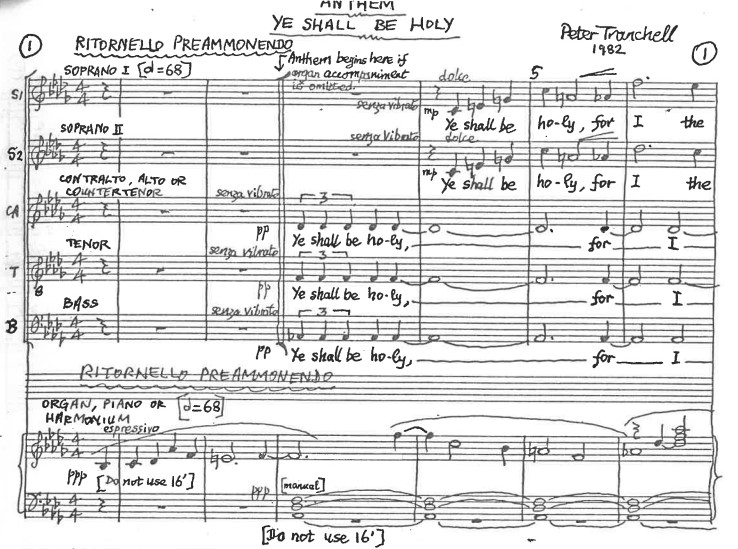 ANTHEM
YE SHALL BE HOLY
Peter Tranchell
1982
1
1
RITORNELLO PREAMMONENDO
Anthem begins here if
organ accompaniment
is omitted.
SOPRANO I [d=68]
S1
senza vibrato
dolce
mp
5
Ye shall be ho-ly, for I the
SOPRANO II
S2
senza vibrato
dolce
mp
Ye shall be ho-ly, for I the
CONTRALTO, ALTO OR
COUNTERTENOR
CA
senza vibrato
3
pp
Ye shall be ho-ly, for I
TENOR
T
8
senza vibrato
3
pp
Ye shall be ho-ly, for I
BASS
B
senza vibrato
3
pp
Ye shall be ho-ly, for I
RITORNELLO PREAMMONENDO
ORGAN, PIANO OR
HARMONIUM
[d=68]
espressivo
ppp
[Do not use 16']
ppp
[manual]
[Do not use 16']